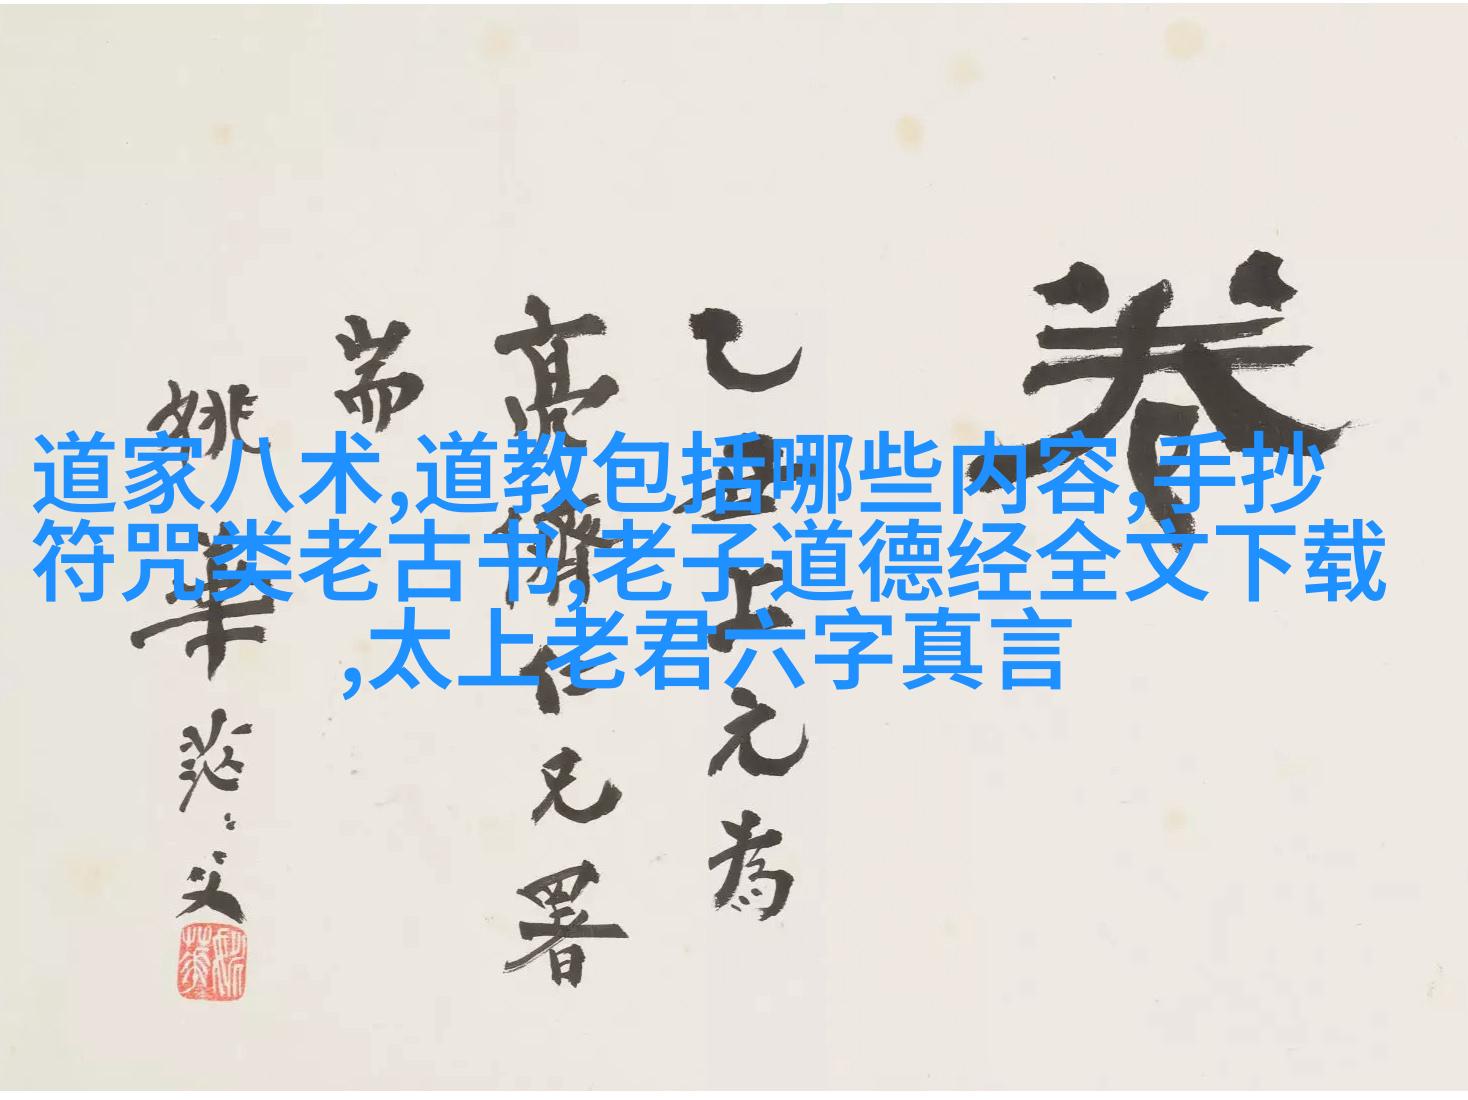 卷
乙丑上元為
亮儕仁兄署
耑
姚華茫茫父
姚華
道家八术,道教包括哪些内容,手抄
符咒类老古书,老子道德经全文下载
,太上老君六字真言